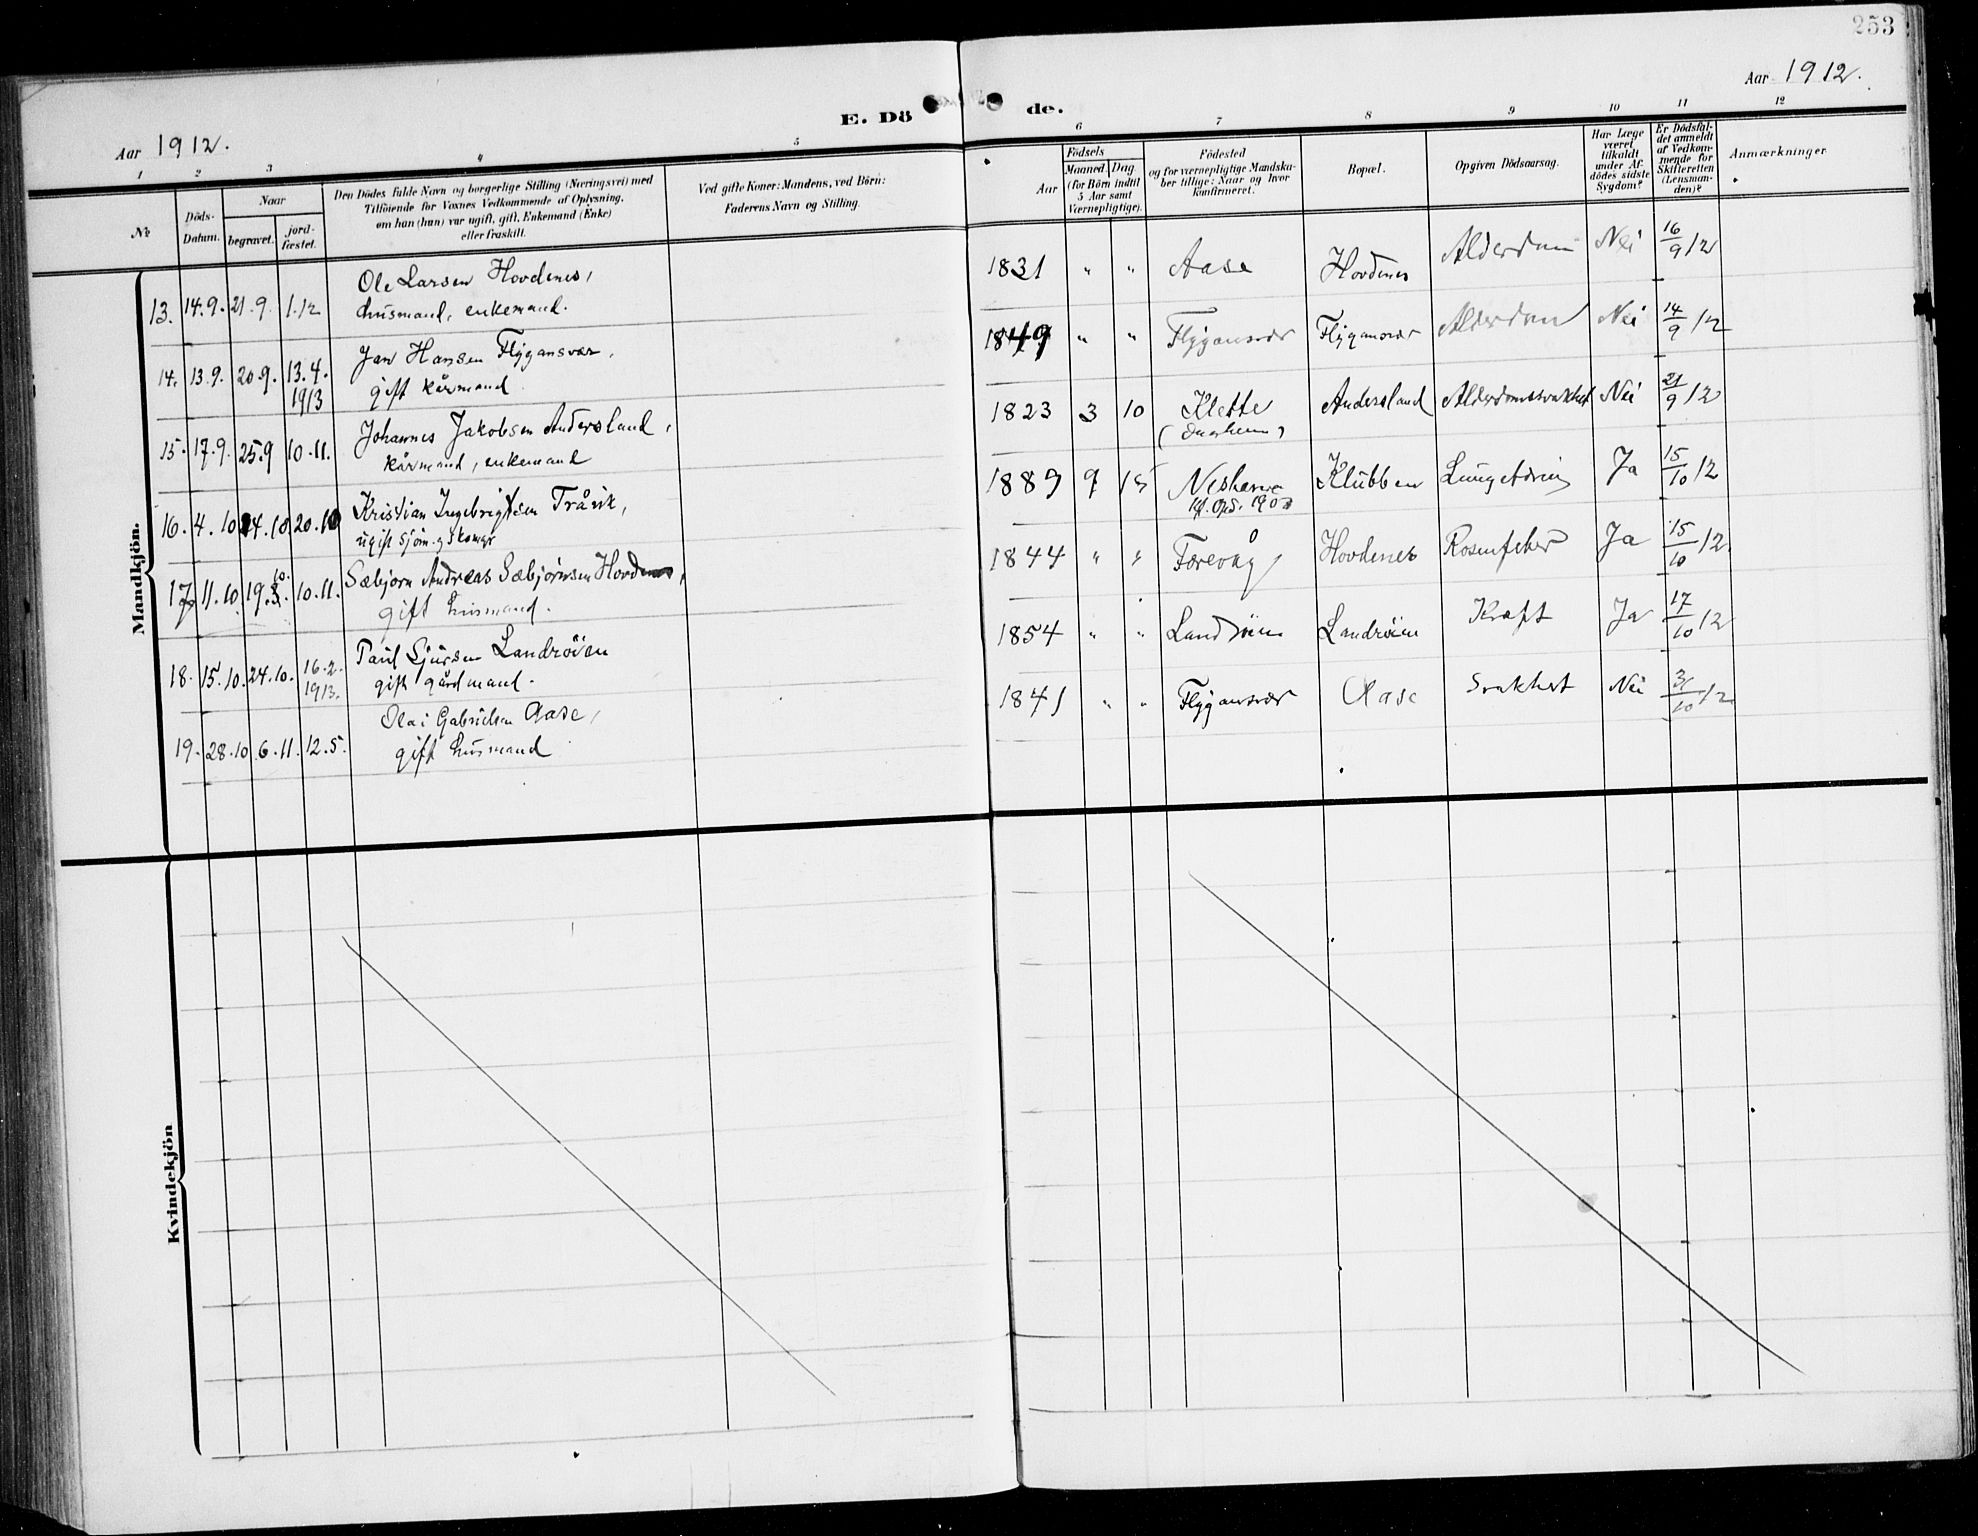 253
Aar 1912.
Aar 1912.
E. Dö de.
1 2 3 4 5 6 7 8 9 10 11 12
No
Döds-
Datum.
Naar
begravet.
jord-
fæstet.
Den Dödes fulde Navn og borgerlige Stilling (Næringsvei) med
Tilföiende for Voxnes Vedkommende af Oplysning,
om han (hun) var ugift, gift, Enkemand (Enke)
eller fraskilt.
Ved gifte Koner: Mandens, ved Börn:
Faderens Navn og Stilling.
Aar
Födsels
Maaned. Dag.
(for Börn indtil
5 Aar samt
Værnepligtige).
Födested
og for værnepligtige Mandska-
ber tillige: Naar og hvor
konfirmeret.
Bopæl.
Opgiven Dödsaarsag.
Har Læge
været
tilkaldt
under Af-
dödes sidste
Sygdom?
Er Dödsfal-
det anmeldt
af Vedkom-
mende for
Skifteretten
(Lensman-
den)?
Anmærkninger
Mandkjön.
13. 14.9. 21.9. 1.12 Ole Larsen Hovdenes,
husmand, enkemand.
1831 " " Aase Hovdenes Alderdom Nei 16/9 12
14. 13.9. 20.9. 13.4.
1913
Jan Hansen Flygansvær,
gift kårmand
1849 " " Flygansvær Flygansvær Alderdom Nei 14/9 12
15. 17.9. 25.9 10.11. Johannes Jakobsen Andersland,
kårmand, enkemand
1823 3 10 Klette Andersland Alderdomssvakhet Nei 21/9 12
16. 4.10 14.10 20.10 Kristian Ingebrigtsen Tråvik,
ugift sjøm.
1889 9 15 Klubben Ja 15/10 12
17 11.10. 19.10. 10.11. Sæbjørn Andreas Sæbjørnsen Hovdenes,
gift husmand.
1844 " " Torevåg Hovdenes Rosenfeber Ja 15/10 12
18. 15.10. 24.10. 16.2.
1913.
Paul Sjursen Landrøen
gift gårdmand.
1854 " " Landrøien Landrøien Kræft Ja 17/10 12
19. 28.10 6.11. 12.5. Olai Gabrielsen Aase,
gift husmand
1841 " " Flygansvær Aase Svakhet Nei 31/10 12
Kvindekjön